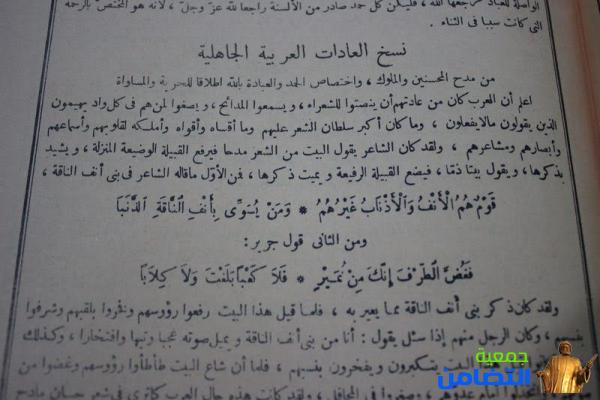 الواصلة للعباد مرجعها الله ، فليكن كل حمد صادر من الألسنة راجعا لله عز وجل ، لأنه هو المختص بالرحمة
التى كانت سببا فى الثناء .
نسخ العادات العربية الجاهلية
من مدح المحسنين والملوك ، واختصاص الحمد والعبادة بالله اطلاقا للحرية والمساواة
اعلم أن العرب كان من عادتهم أن ينصتوا للشعراء ، ويسمعوا المدائح ، ويصغوا لمن هم فى كل واد يهيمون
الذين يقولون مالا يفعلون ، وما كان أكبر سلطان الشعر عليهم وما أقساه وأقواه وأملكه لقلوبهم وأسماعهم
وأبصارهم ومشاعرهم ، ولقد كان الشاعر يقول البيت من الشعر مدحا فيرفع القبيلة الوضيعة المنزلة ، ويشيد
بذكرها ، ويقول بيتا ذمّا ، فيضع القبيلة الرفيعة و يميت ذكرها ، فمن الأوّل ماقاله الشاعر فى بنى أنف الناقة ،
قَوْمٌ هُمُ الْأَنْفُ وَالْأَذْنَابُ غَيْرُهُمُ * وَمَنْ يُسَوِّى بِأَنْفِ النَّاقَةِ الذَّنَبَا
ومن الثانى قول جرير :
فَغُضَّ الطَّرْفَ إِنَّكَ مِنْ نُمَيْرٍ * فَلَا كَعْبًا بَلَغْتَ وَلَا كِلَابَا
ولقد كان ذكر بنى أنف الناقة مما يعير به ، فلما قيل هذا البيت رفعوا رؤوسهم وفخروا بلقبهم وشرفوا
بنسبهم ، وكان الرجل منهم إذا سئل يقول : أنا من بنى أنف الناقة ويميل صوته عجبا وتيها وافتخارا ، وكذلك
هذا البيت يتكبرون ويفخرون بنسبهم ، فلما أن شاع البيت طأطأوا رؤوسهم وغضوا من
أمام عدوهم ، وصغروا فى المحافل ، ولقد كانت هذه حال العرب
جمعية
التضامن